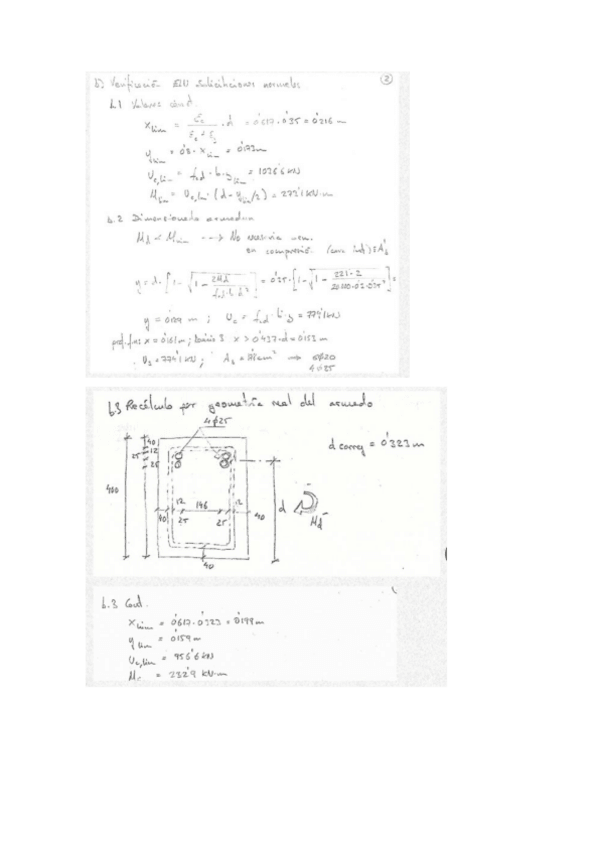 b) Verificación ELU Solicitaciones normales
②
b.1 Valores cond.
x lim = · d = 0'617 · 0'35 = 0'216 m
y lim = 0'8 · x lim = 0'173 m
Uc,lim = fcd · b · y lim = 1036'6 kN
M lim = Uc,lim · (d - y lim/2) = 273'1 kN·m
b.2 Dimensionado armadura
Md < M lim ---> No necesaria arm.
en compresión
y = d · [1 - √(1 - 2Md / fcd·b·d²)] = 0'35 ·
y = 0'129 m ; Uc = fcd · b · y = 774'1 kN
prof. fn x = 0'161 m ; dominio 3 x > 0'437·d = 0'153 m
Us = 774'1 kN ; As = cm² → 6Ø20
4Ø25
b.3 Recálculo por geometría real del armado
4Ø25
d correg = 0'323 m
40
12
25
25
400
12 146 12
40 25 25 40
d
Md
40
b.3 Cond.
x lim = 0'617 · 0'323 = 0'199 m
y lim = 0'159 m
Uc,lim = 956'6 kN
= 232'9 kN·m